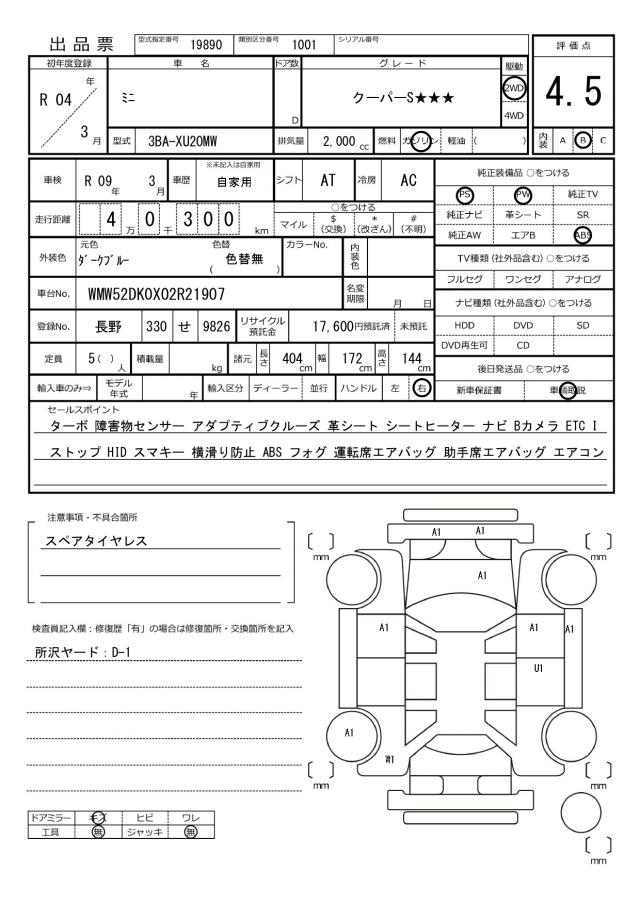 出品票 型式指定番号 19890 類別区分番号 1001 シリアル番号
評価点
4.5
内装 A B C
初年度登録 車名 ドア数 グレード 駆動
R 04 年 3 月
ミニ D クーパーS★★★ 2WD
4WD
型式 3BA-XU20MW 排気量 2,000 cc 燃料 ガソリン 軽油 ( )
車検 R 09 年 3 月 車歴 ※未記入は自家用 自家用 シフト AT 冷房 AC
走行距離 4 万 0 千 3 0 0 km
○をつける
マイル $ (交換) * (改ざん) # (不明)
外装色 元色 ダークブルー 色替 ( 色替無 ) カラーNo. 内装色
車台No. WMW52DK0X02R21907 名変期限 月 日
登録No. 長野 330 せ 9826 リサイクル預託金 17,600円預託済 未預託
定員 5( ) 人 積載量 kg 諸元 長さ 404 cm 幅 172 cm 高さ 144 cm
輸入車のみ⇒ モデル年式 年 輸入区分 ディーラー 並行 ハンドル 左 右
純正装備品 ○をつける
PS PW 純正TV
純正ナビ 革シート SR
純正AW エアB ABS
TV種類 (社外品含む) ○をつける
フルセグ ワンセグ アナログ
ナビ種類 (社外品含む) ○をつける
HDD DVD SD
DVD再生可 CD
後日発送品 ○をつける
新車保証書 車輌取説
セールスポイント
ターボ 障害物センサー アダプティブクルーズ 革シート シートヒーター ナビ Bカメラ ETC I
ストップ HID スマキー 横滑り防止 ABS フォグ 運転席エアバッグ 助手席エアバッグ エアコン
注意事項・不具合箇所
スペアタイヤレス
検査員記入欄：修復歴「有」の場合は修復箇所・交換箇所を記入
所沢ヤード：D-1
ドアミラー キズ ヒビ ワレ
工具 無 ジャッキ 無
A1 A1
mm mm
A1
A1 A1 A1
U1
A1
W1
mm mm
mm